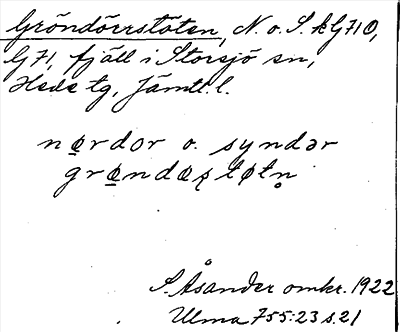 Gröndörrstöten, N. o. S. k G710,
G71, fjäll i Storsjö sn,
Hede tg, Jämtl. l.
nørdor o. syndər
grøndøʂtøtn̥
S. Åsander omkr. 1922
Ulma 755:23 s. 21